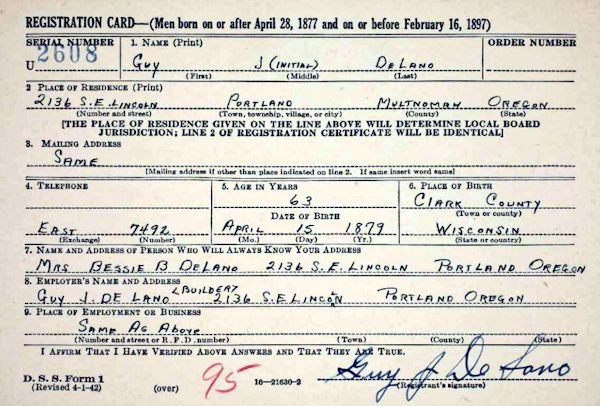 REGISTRATION CARD—(Men born on or after April 28, 1877 and on or before February 16, 1897)
SERIAL NUMBER 1. NAME (Print) ORDER NUMBER
U 2608 GUY J (INITIAL) DELANO
(First) (Middle) (Last)
2 PLACE OF RESIDENCE (Print)
2136 S.E. LINCOLN PORTLAND MULTNOMAH OREGON
(Number and street) (Town, township, village, or city) (County) (State)
[THE PLACE OF RESIDENCE GIVEN ON THE LINE ABOVE WILL DETERMINE LOCAL BOARD
JURISDICTION; LINE 2 OF REGISTRATION CERTIFICATE WILL BE IDENTICAL]
3. MAILING ADDRESS
SAME
[Mailing address if other than place indicated on line 2. If same insert word same]
4. TELEPHONE 5. AGE IN YEARS 6. PLACE OF BIRTH
63 CLARK COUNTY
DATE OF BIRTH (Town or county)
EAST 7492 APRIL 15 1879 WISCONSIN
(Exchange) (Number) (Mo.) (Day) (Yr.) (State or country)
7. NAME AND ADDRESS OF PERSON WHO WILL ALWAYS KNOW YOUR ADDRESS
MRS BESSIE B DELANO 2136 S.E. LINCOLN PORTLAND OREGON
8. EMPLOYER'S NAME AND ADDRESS
GUY J. DE LANO (BUILDER) 2136 S.E LINCOLN PORTLAND OREGON
9. PLACE OF EMPLOYMENT OR BUSINESS
SAME AS ABOVE
(Number and street or R.F.D. number) (Town) (County) (State)
I AFFIRM THAT I HAVE VERIFIED ABOVE ANSWERS AND THAT THEY ARE TRUE.
D. S. S. Form 1 95 Guy J De Lano
(Revised 4-1-42) (over) 16—21630-2 (Registrant's signature)